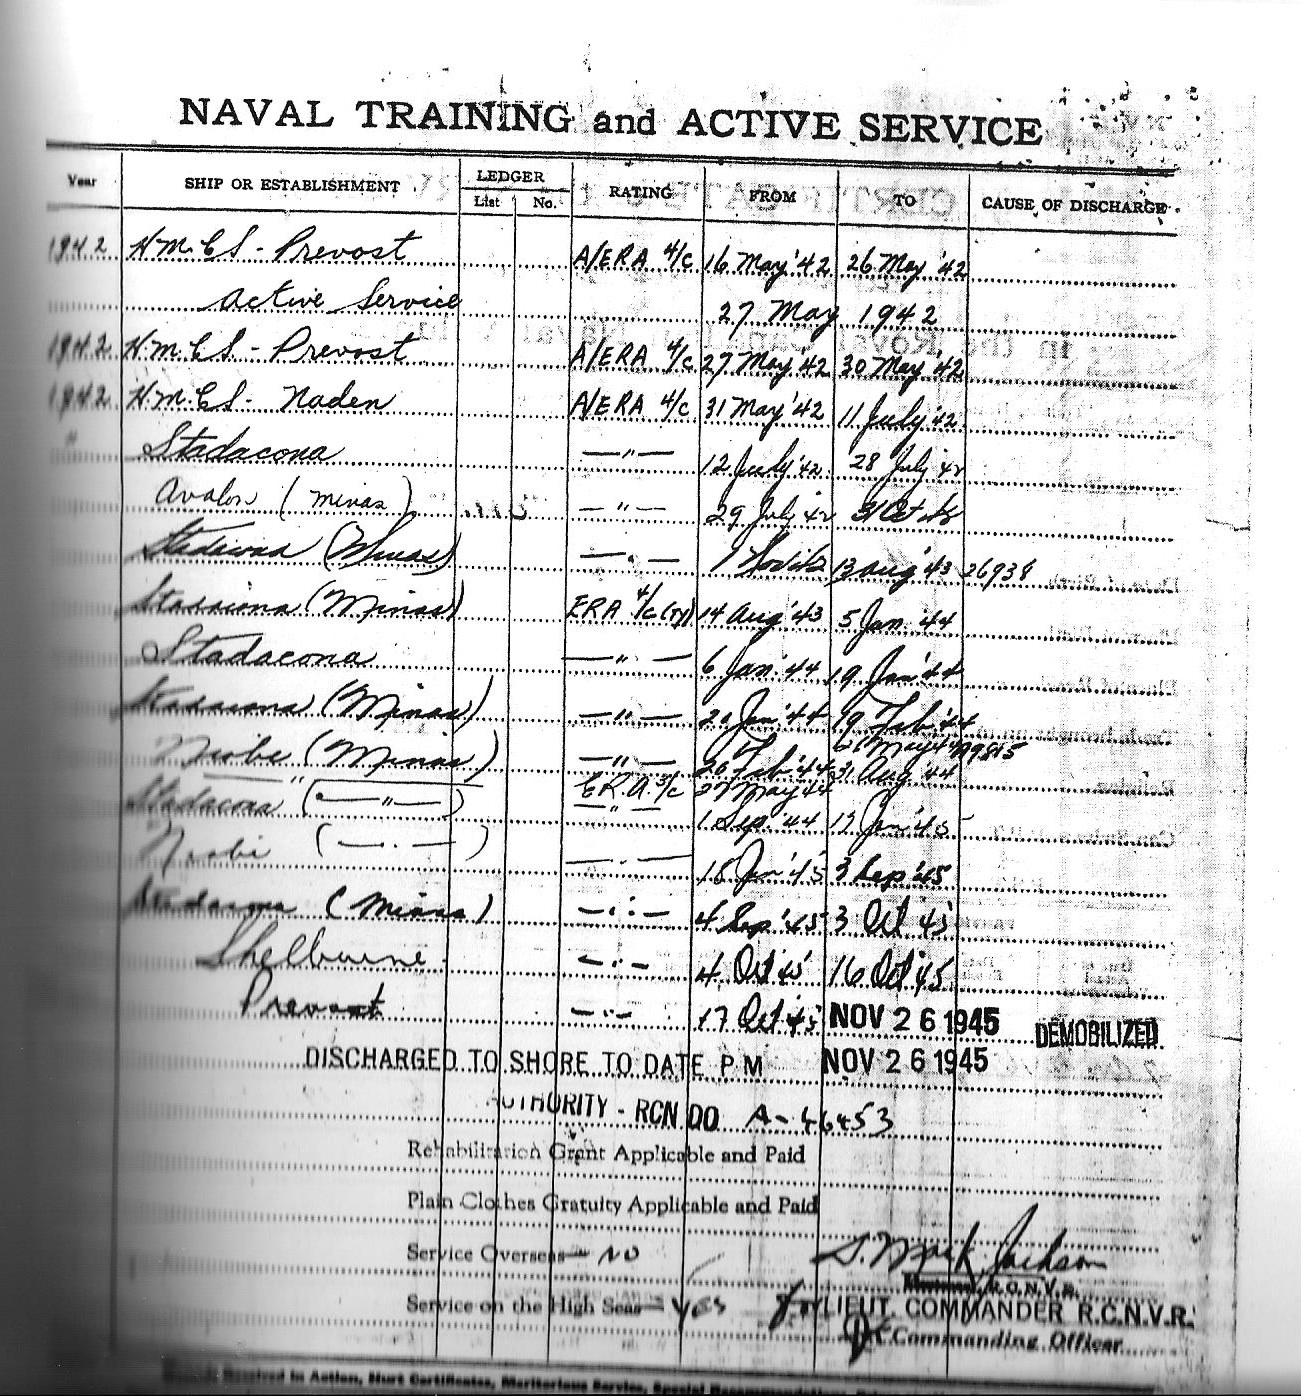 NAVAL TRAINING and ACTIVE SERVICE
Year SHIP OR ESTABLISHMENT LEDGER RATING FROM TO CAUSE OF DISCHARGE
List No.
1942 H.M.C.S. - Prevost A/ERA 4/c 16 May '42 26 May '42
Active Service 27 May 1942
1942 H.M.C.S. - Prevost A/ERA 4/c 27 May '42 30 May '42
1942 H.M.C.S. Naden A/ERA 4/c 31 May '42 11 July '42
" Stadacona —"— 12 July '42 28 July 42
Avalon (Minas) —"— 29 July 42 31 Oct
Stadacona (Minas) —"— 1 Nov 13 Aug '43 26938
Stadacona (Minas) ERA 4/c (Ty) 14 Aug '43 5 Jan '44
Stadacona —"— 6 Jan '44 19 Jan '44
Stadacona (Minas) —"— 20 Jan '44 19 Feb '44
Niobe (Minas) —"— Feb '44 May 44
" E.R.A. 3/c May 44 31 Aug '44
Stadacona (—"—) —"— 1 Sep '44 17 Jan '45
Niobe (—"—) —"— 18 Jan '45 3 Sep '45
Stadacona (Minas) —"— 4 Sep '45 3 Oct 45
Shelburne —"— 4 Oct 45 16 Oct '45
Prevost —"— 17 Oct 45 NOV 26 1945 DEMOBILIZED
DISCHARGED TO SHORE TO DATE P M NOV 26 1945
AUTHORITY - RCN DO A-46453
Rehabilitation Grant Applicable and Paid
Plain Clothes Gratuity Applicable and Paid
Service Overseas — NO
S. Mark Jackson
R.C.N.V.R.
Service on the High Seas — Yes LIEUT. COMMANDER R.C.N.V.R.
Commanding Officer
Received in Action, Hurt Certificates, Meritorious Service, Special Recommendations